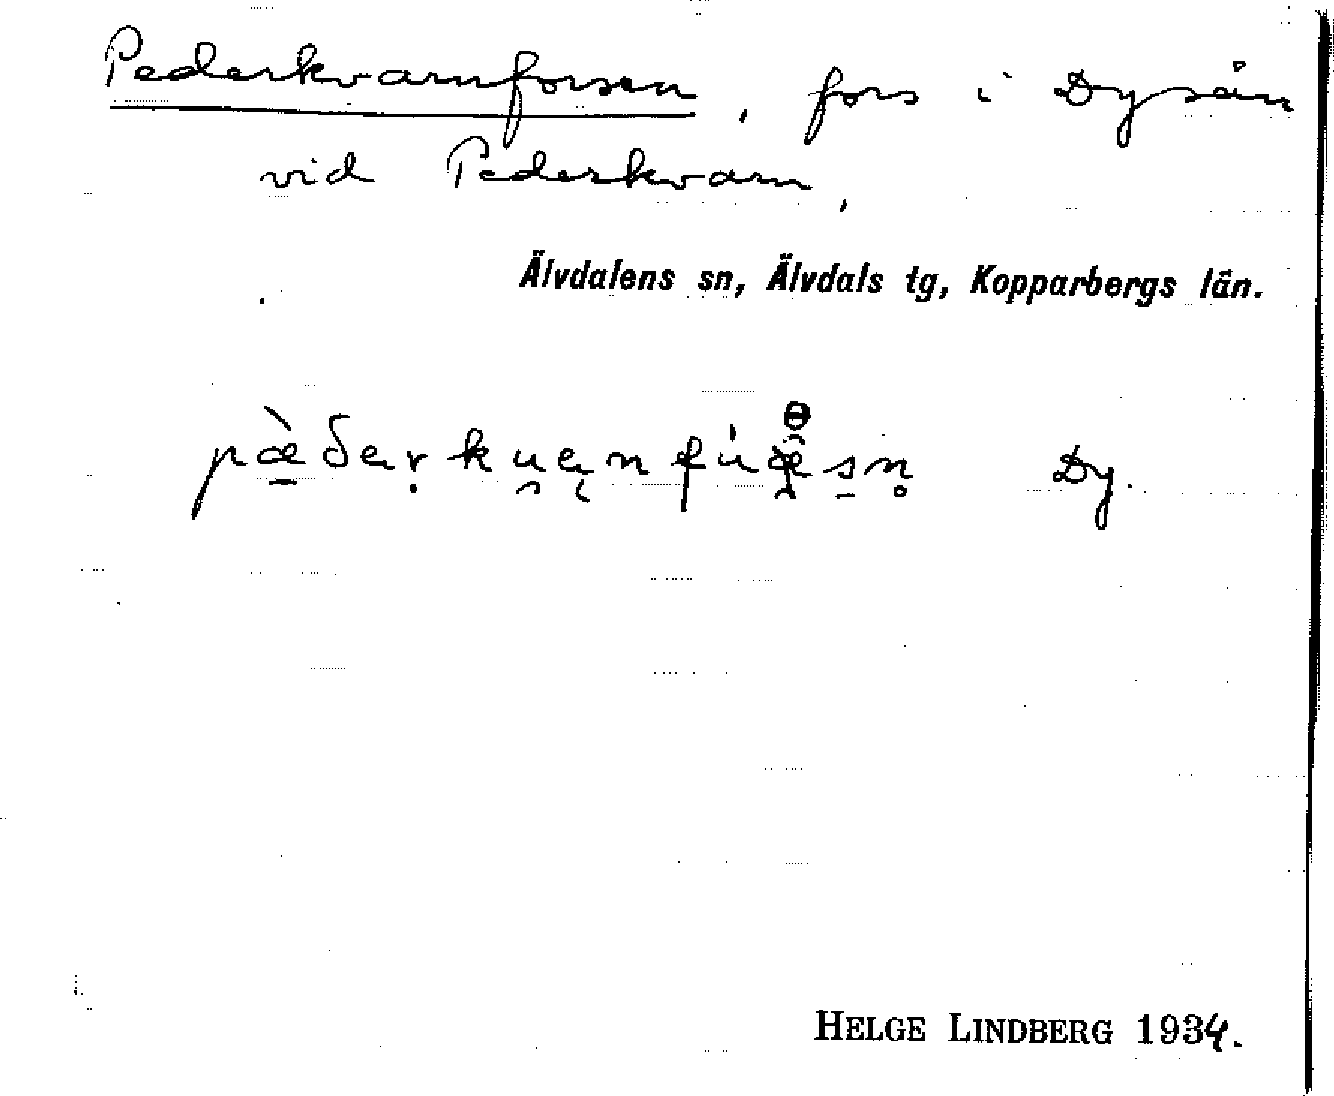 Pederkvarnforsen, fors i Dysån
vid Pederkvarn,
Älvdalens sn, Älvdals tg, Kopparbergs län.
Dy.
HELGE LINDBERG 1934.